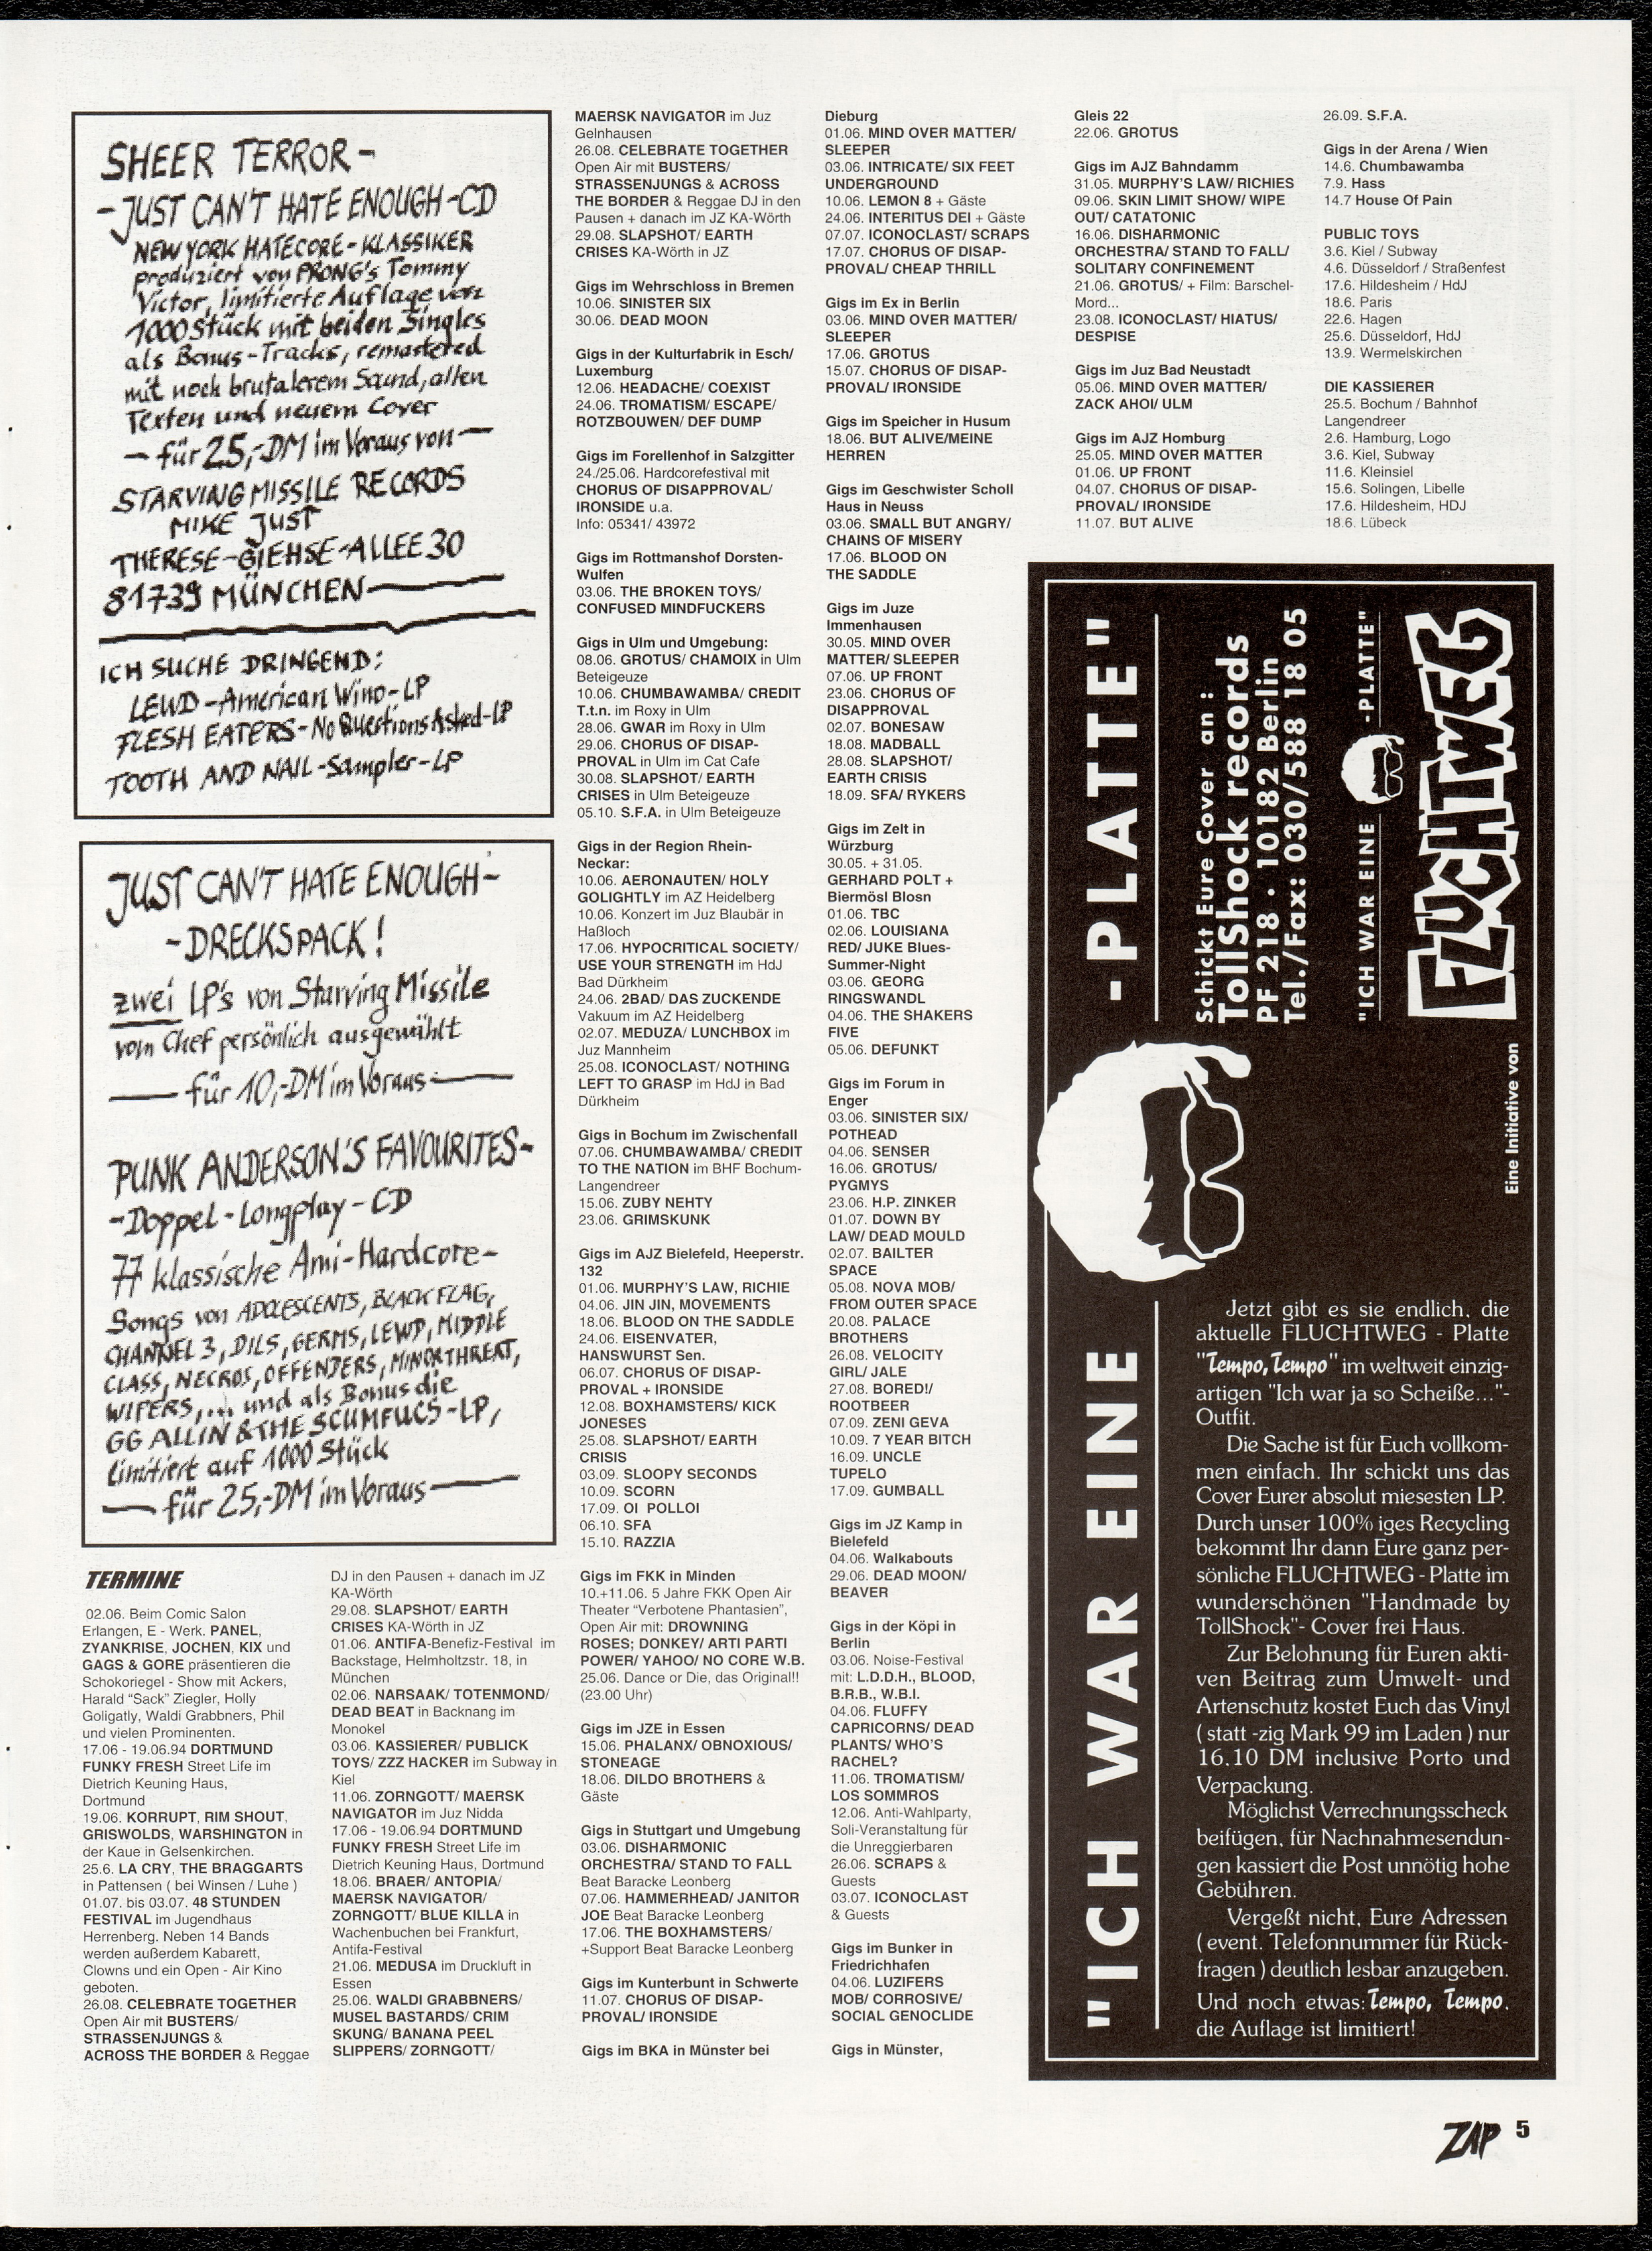 SHEER TERROR -
- JUST CAN'T HATE ENOUGH - CD
NEW YORK HATECORE - KLASSIKER
produziert von PRONG's Tommy
Victor, limitierte Auflage von
1000 Stück mit beiden Singles
als Bonus-Tracks, remastered
mit noch brutalerem Sound, allen
Texten und neuem Cover
- für 25,-DM im Voraus von -
STARVING MISSILE RECORDS
MIKE JUST
THERESE-GIEHSE-ALLEE 30
81739 MÜNCHEN
ICH SUCHE DRINGEND:
LEWD - American Wino - LP
FLESH EATERS - No Questions Asked - LP
TOOTH AND NAIL - Sampler - LP
JUST CAN'T HATE ENOUGH -
- DRECKSPACK!
zwei LP's von Starving Missile
vom Chef persönlich ausgewählt
- für 10,-DM im Voraus -
PUNK ANDERSON'S FAVOURITES -
- Doppel - Longplay - CD
77 klassische Ami-Hardcore-
Songs von ADOLESCENTS, BLACK FLAG,
CHANNEL 3, DILS, GERMS, LEWD, MIDDLE
CLASS, NECROS, OFFENDERS, MINOR THREAT,
WIPERS, ... und als Bonus die
GG ALLIN & THE SCUMFUCS - LP,
limitiert auf 1000 Stück
- für 25,-DM im Voraus -
TERMINE
02.06. Beim Comic Salon
Erlangen, E - Werk. PANEL,
ZYANKRISE, JOCHEN, KIX und
GAGS & GORE präsentieren die
Schokoriegel - Show mit Ackers,
Harald "Sack" Ziegler, Holly
Goligatly, Waldi Grabbners, Phil
und vielen Prominenten.
17.06 - 19.06.94 DORTMUND
FUNKY FRESH Street Life im
Dietrich Keuning Haus,
Dortmund
19.06. KORRUPT, RIM SHOUT,
GRISWOLDS, WARSHINGTON in
der Kaue in Gelsenkirchen.
25.6. LA CRY, THE BRAGGARTS
in Pattensen ( bei Winsen / Luhe )
01.07. bis 03.07. 48 STUNDEN
FESTIVAL im Jugendhaus
Herrenberg. Neben 14 Bands
werden außerdem Kabarett,
Clowns und ein Open - Air Kino
geboten.
26.08. CELEBRATE TOGETHER
Open Air mit BUSTERS/
STRASSENJUNGS &
ACROSS THE BORDER & Reggae
DJ in den Pausen + danach im JZ
KA-Wörth
29.08. SLAPSHOT/ EARTH
CRISES KA-Wörth in JZ
01.06. ANTIFA-Benefiz-Festival im
Backstage, Helmholtzstr. 18, in
München
02.06. NARSAAK/ TOTENMOND/
DEAD BEAT in Backnang im
Monokel
03.06. KASSIERER/ PUBLICK
TOYS/ ZZZ HACKER im Subway in
Kiel
11.06. ZORNGOTT/ MAERSK
NAVIGATOR im Juz Nidda
17.06 - 19.06.94 DORTMUND
FUNKY FRESH Street Life im
Dietrich Keuning Haus, Dortmund
18.06. BRAER/ ANTOPIA/
MAERSK NAVIGATOR/
ZORNGOTT/ BLUE KILLA in
Wachenbuchen bei Frankfurt,
Antifa-Festival
21.06. MEDUSA im Druckluft in
Essen
25.06. WALDI GRABBNERS/
MUSEL BASTARDS/ CRIM
SKUNG/ BANANA PEEL
SLIPPERS/ ZORNGOTT/
MAERSK NAVIGATOR im Juz
Gelnhausen
26.08. CELEBRATE TOGETHER
Open Air mit BUSTERS/
STRASSENJUNGS & ACROSS
THE BORDER & Reggae DJ in den
Pausen + danach im JZ KA-Wörth
29.08. SLAPSHOT/ EARTH
CRISES KA-Wörth in JZ
Gigs im Wehrschloss in Bremen
10.06. SINISTER SIX
30.06. DEAD MOON
Gigs in der Kulturfabrik in Esch/
Luxemburg
12.06. HEADACHE/ COEXIST
24.06. TROMATISM/ ESCAPE/
ROTZBOUWEN/ DEF DUMP
Gigs im Forellenhof in Salzgitter
24./25.06. Hardcorefestival mit
CHORUS OF DISAPPROVAL/
IRONSIDE u.a.
Info: 05341/ 43972
Gigs im Rottmanshof Dorsten-
Wulfen
03.06. THE BROKEN TOYS/
CONFUSED MINDFUCKERS
Gigs in Ulm und Umgebung:
08.06. GROTUS/ CHAMOIX in Ulm
Beteigeuze
10.06. CHUMBAWAMBA/ CREDIT
T.t.n. im Roxy in Ulm
28.06. GWAR im Roxy in Ulm
29.06. CHORUS OF DISAP-
PROVAL in Ulm im Cat Cafe
30.08. SLAPSHOT/ EARTH
CRISES in Ulm Beteigeuze
05.10. S.F.A. in Ulm Beteigeuze
Gigs in der Region Rhein-
Neckar:
10.06. AERONAUTEN/ HOLY
GOLIGHTLY im AZ Heidelberg
10.06. Konzert im Juz Blaubär in
Haßloch
17.06. HYPOCRITICAL SOCIETY/
USE YOUR STRENGTH im HdJ
Bad Dürkheim
24.06. 2BAD/ DAS ZUCKENDE
Vakuum im AZ Heidelberg
02.07. MEDUZA/ LUNCHBOX im
Juz Mannheim
25.08. ICONOCLAST/ NOTHING
LEFT TO GRASP im HdJ in Bad
Dürkheim
Gigs in Bochum im Zwischenfall
07.06. CHUMBAWAMBA/ CREDIT
TO THE NATION im BHF Bochum-
Langendreer
15.06. ZUBY NEHTY
23.06. GRIMSKUNK
Gigs im AJZ Bielefeld, Heeperstr.
132
01.06. MURPHY'S LAW, RICHIE
04.06. JIN JIN, MOVEMENTS
18.06. BLOOD ON THE SADDLE
24.06. EISENVATER,
HANSWURST Sen.
06.07. CHORUS OF DISAP-
PROVAL + IRONSIDE
12.08. BOXHAMSTERS/ KICK
JONESES
25.08. SLAPSHOT/ EARTH
CRISIS
03.09. SLOOPY SECONDS
10.09. SCORN
17.09. OI POLLOI
06.10. SFA
15.10. RAZZIA
Gigs im FKK in Minden
10.+11.06. 5 Jahre FKK Open Air
Theater "Verbotene Phantasien",
Open Air mit: DROWNING
ROSES; DONKEY/ ARTI PARTI
POWER/ YAHOO/ NO CORE W.B.
25.06. Dance or Die, das Original!!
(23.00 Uhr)
Gigs im JZE in Essen
15.06. PHALANX/ OBNOXIOUS/
STONEAGE
18.06. DILDO BROTHERS &
Gäste
Gigs in Stuttgart und Umgebung
03.06. DISHARMONIC
ORCHESTRA/ STAND TO FALL
Beat Baracke Leonberg
07.06. HAMMERHEAD/ JANITOR
JOE Beat Baracke Leonberg
17.06. THE BOXHAMSTERS/
+Support Beat Baracke Leonberg
Gigs im Kunterbunt in Schwerte
11.07. CHORUS OF DISAP-
PROVAL/ IRONSIDE
Gigs im BKA in Münster bei
Dieburg
01.06. MIND OVER MATTER/
SLEEPER
03.06. INTRICATE/ SIX FEET
UNDERGROUND
10.06. LEMON 8 + Gäste
24.06. INTERITUS DEI + Gäste
07.07. ICONOCLAST/ SCRAPS
17.07. CHORUS OF DISAP-
PROVAL/ CHEAP THRILL
Gigs im Ex in Berlin
03.06. MIND OVER MATTER/
SLEEPER
17.06. GROTUS
15.07. CHORUS OF DISAP-
PROVAL/ IRONSIDE
Gigs im Speicher in Husum
18.06. BUT ALIVE/MEINE
HERREN
Gigs im Geschwister Scholl
Haus in Neuss
03.06. SMALL BUT ANGRY/
CHAINS OF MISERY
17.06. BLOOD ON
THE SADDLE
Gigs im Juze
Immenhausen
30.05. MIND OVER
MATTER/ SLEEPER
07.06. UP FRONT
23.06. CHORUS OF
DISAPPROVAL
02.07. BONESAW
18.08. MADBALL
28.08. SLAPSHOT/
EARTH CRISIS
18.09. SFA/ RYKERS
Gigs im Zelt in
Würzburg
30.05. + 31.05.
GERHARD POLT +
Biermösl Blosn
01.06. TBC
02.06. LOUISIANA
RED/ JUKE Blues-
Summer-Night
03.06. GEORG
RINGSWANDL
04.06. THE SHAKERS
FIVE
05.06. DEFUNKT
Gigs im Forum in
Enger
03.06. SINISTER SIX/
POTHEAD
04.06. SENSER
16.06. GROTUS/
PYGMYS
23.06. H.P. ZINKER
01.07. DOWN BY
LAW/ DEAD MOULD
02.07. BAILTER
SPACE
05.08. NOVA MOB/
FROM OUTER SPACE
20.08. PALACE
BROTHERS
26.08. VELOCITY
GIRL/ JALE
27.08. BORED!/
ROOTBEER
07.09. ZENI GEVA
10.09. 7 YEAR BITCH
16.09. UNCLE
TUPELO
17.09. GUMBALL
Gigs im JZ Kamp in
Bielefeld
04.06. Walkabouts
29.06. DEAD MOON/
BEAVER
Gigs in der Köpi in
Berlin
03.06. Noise-Festival
mit: L.D.D.H., BLOOD,
B.R.B., W.B.I.
04.06. FLUFFY
CAPRICORNS/ DEAD
PLANTS/ WHO'S
RACHEL?
11.06. TROMATISM/
LOS SOMMROS
12.06. Anti-Wahlparty,
Soli-Veranstaltung für
die Unreggierbaren
26.06. SCRAPS &
Guests
03.07. ICONOCLAST
& Guests
Gigs im Bunker in
Friedrichhafen
04.06. LUZIFERS
MOB/ CORROSIVE/
SOCIAL GENOCLIDE
Gigs in Münster,
Gleis 22
22.06. GROTUS
Gigs im AJZ Bahndamm
31.05. MURPHY'S LAW/ RICHIES
09.06. SKIN LIMIT SHOW/ WIPE
OUT/ CATATONIC
16.06. DISHARMONIC
ORCHESTRA/ STAND TO FALL/
SOLITARY CONFINEMENT
21.06. GROTUS/ + Film: Barschel-
Mord...
23.08. ICONOCLAST/ HIATUS/
DESPISE
Gigs im Juz Bad Neustadt
05.06. MIND OVER MATTER/
ZACK AHOI/ ULM
Gigs im AJZ Homburg
25.05. MIND OVER MATTER
01.06. UP FRONT
04.07. CHORUS OF DISAP-
PROVAL/ IRONSIDE
11.07. BUT ALIVE
26.09. S.F.A.
Gigs in der Arena / Wien
14.6. Chumbawamba
7.9. Hass
14.7 House Of Pain
PUBLIC TOYS
3.6. Kiel / Subway
4.6. Düsseldorf / Straßenfest
17.6. Hildesheim / HdJ
18.6. Paris
22.6. Hagen
25.6. Düsseldorf, HdJ
13.9. Wermelskirchen
DIE KASSIERER
25.5. Bochum / Bahnhof
Langendreer
2.6. Hamburg, Logo
3.6. Kiel, Subway
11.6. Kleinsiel
15.6. Solingen, Libelle
17.6. Hildesheim, HDJ
18.6. Lübeck
"ICH WAR EINE -PLATTE"
Schickt Eure Cover an :
TollShock records
PF 218 · 10182 Berlin
Tel./Fax: 030/588 18 05
"ICH WAR EINE -PLATTE"
Eine Initiative von
FLUCHTWEG
Jetzt gibt es sie endlich, die
aktuelle FLUCHTWEG - Platte
"Tempo, Tempo" im weltweit einzig-
artigen "Ich war ja so Scheiße..."-
Outfit.
Die Sache ist für Euch vollkom-
men einfach. Ihr schickt uns das
Cover Eurer absolut miesesten LP.
Durch unser 100% iges Recycling
bekommt Ihr dann Eure ganz per-
sönliche FLUCHTWEG - Platte im
wunderschönen "Handmade by
TollShock"- Cover frei Haus.
Zur Belohnung für Euren akti-
ven Beitrag zum Umwelt- und
Artenschutz kostet Euch das Vinyl
( statt -zig Mark 99 im Laden ) nur
16,10 DM inclusive Porto und
Verpackung.
Möglichst Verrechnungsscheck
beifügen, für Nachnahmesendun-
gen kassiert die Post unnötig hohe
Gebühren.
Vergeßt nicht, Eure Adressen
( event. Telefonnummer für Rück-
fragen ) deutlich lesbar anzugeben.
Und noch etwas: Tempo, Tempo,
die Auflage ist limitiert!
ZAP 5